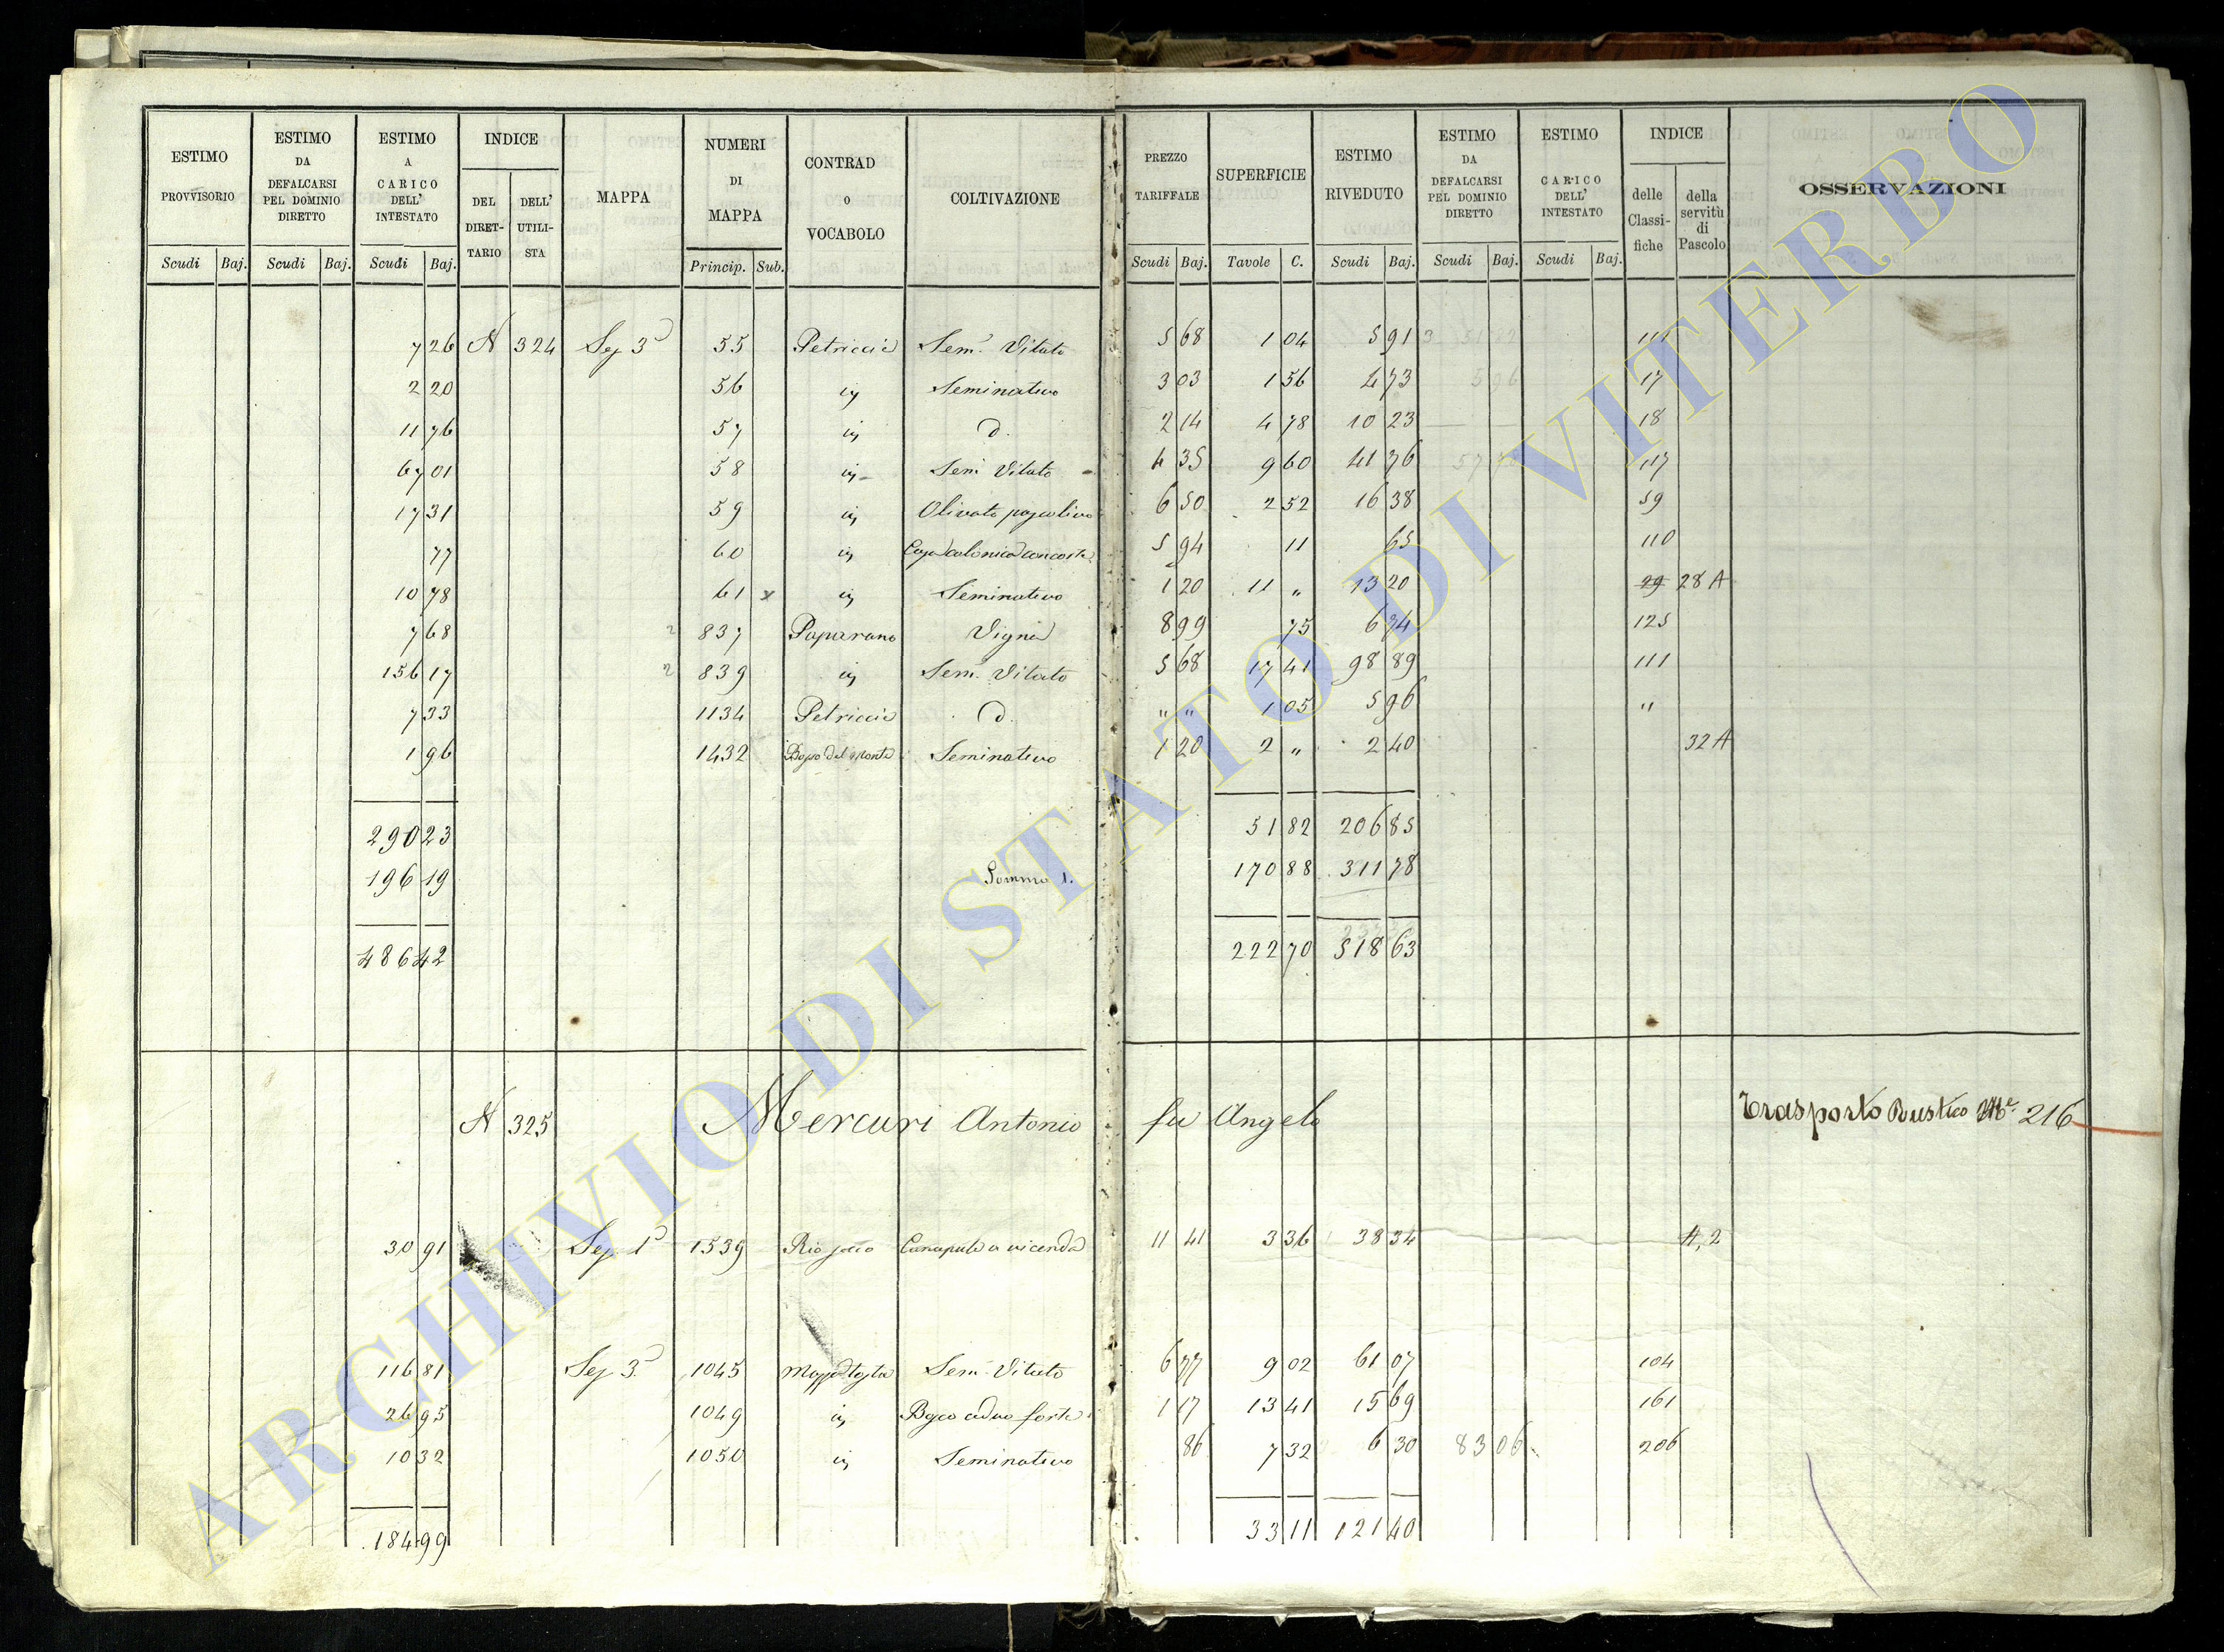 ESTIMO PROVVISORIO
ESTIMO DA DEFALCARSI PEL DOMINIO DIRETTO
ESTIMO A CARICO DELL' INTESTATO
INDICE
DEL DIRET-TARIO
DELL' UTILI-STA
MAPPA
NUMERI DI MAPPA
CONTRAD O VOCABOLO
COLTIVAZIONE
PREZZO TARIFFALE
SUPERFICIE
ESTIMO RIVEDUTO
ESTIMO DA DEFALCARSI PEL DOMINIO DIRETTO
ESTIMO A CARICO DELL' INTESTATO
INDICE
delle Classi-fiche
della servitù di Pascolo
OSSERVAZIONI
Scudi Baj. Scudi Baj. Scudi Baj. Princip. Sub. Scudi Baj. Tavole C. Scudi Baj. Scudi Baj. Scudi Baj.
7 26 N 324 Sez 3ª 55 Petriccia Sem. Vitato 5 68 1 04 5 91 111
2 20 56 id Seminativo 3 03 1 56 4 73 17
11 76 57 id d. 2 14 4 78 10 23 18
67 01 58 id Sem Vitato 4 35 9 60 41 76 117
17 31 59 id Olivato pascolivo 6 50 2 52 16 38 59
77 60 id Casa colonica con corte 5 94 11 65 110
10 78 61 x id Seminativo 1 20 11 " 13 20 29 28 A
7 68 2 837 Paparano Vigna 8 99 75 6 74 125
156 17 2 839 id Sem. Vitato 5 68 17 41 98 89 111
7 33 1134 Petriccia d. " " 1 05 5 96 "
1 96 1432 Seminativo 1 20 2 " 2 40 32 A
290 23 51 82 206 85
196 19 Somma 1. 170 88 311 78
486 42 222 70 518 63
N 325 Mercuri Antonio fu Angelo Trasporto Rustico 216
30 91 Sez 1ª 1539 Rio secco Canapule a vicenda 11 41 3 36 38 34 A, 2
116 81 Sez 3ª 1045 Sem. Vitato 6 77 9 02 61 07 104
26 95 1049 id Bosco ceduo forte 1 17 13 41 15 69 161
10 32 1050 id Seminativo 86 7 32 6 30 83 06 206
184 99 33 11 121 40
ARCHIVIO DI STATO DI VITERBO